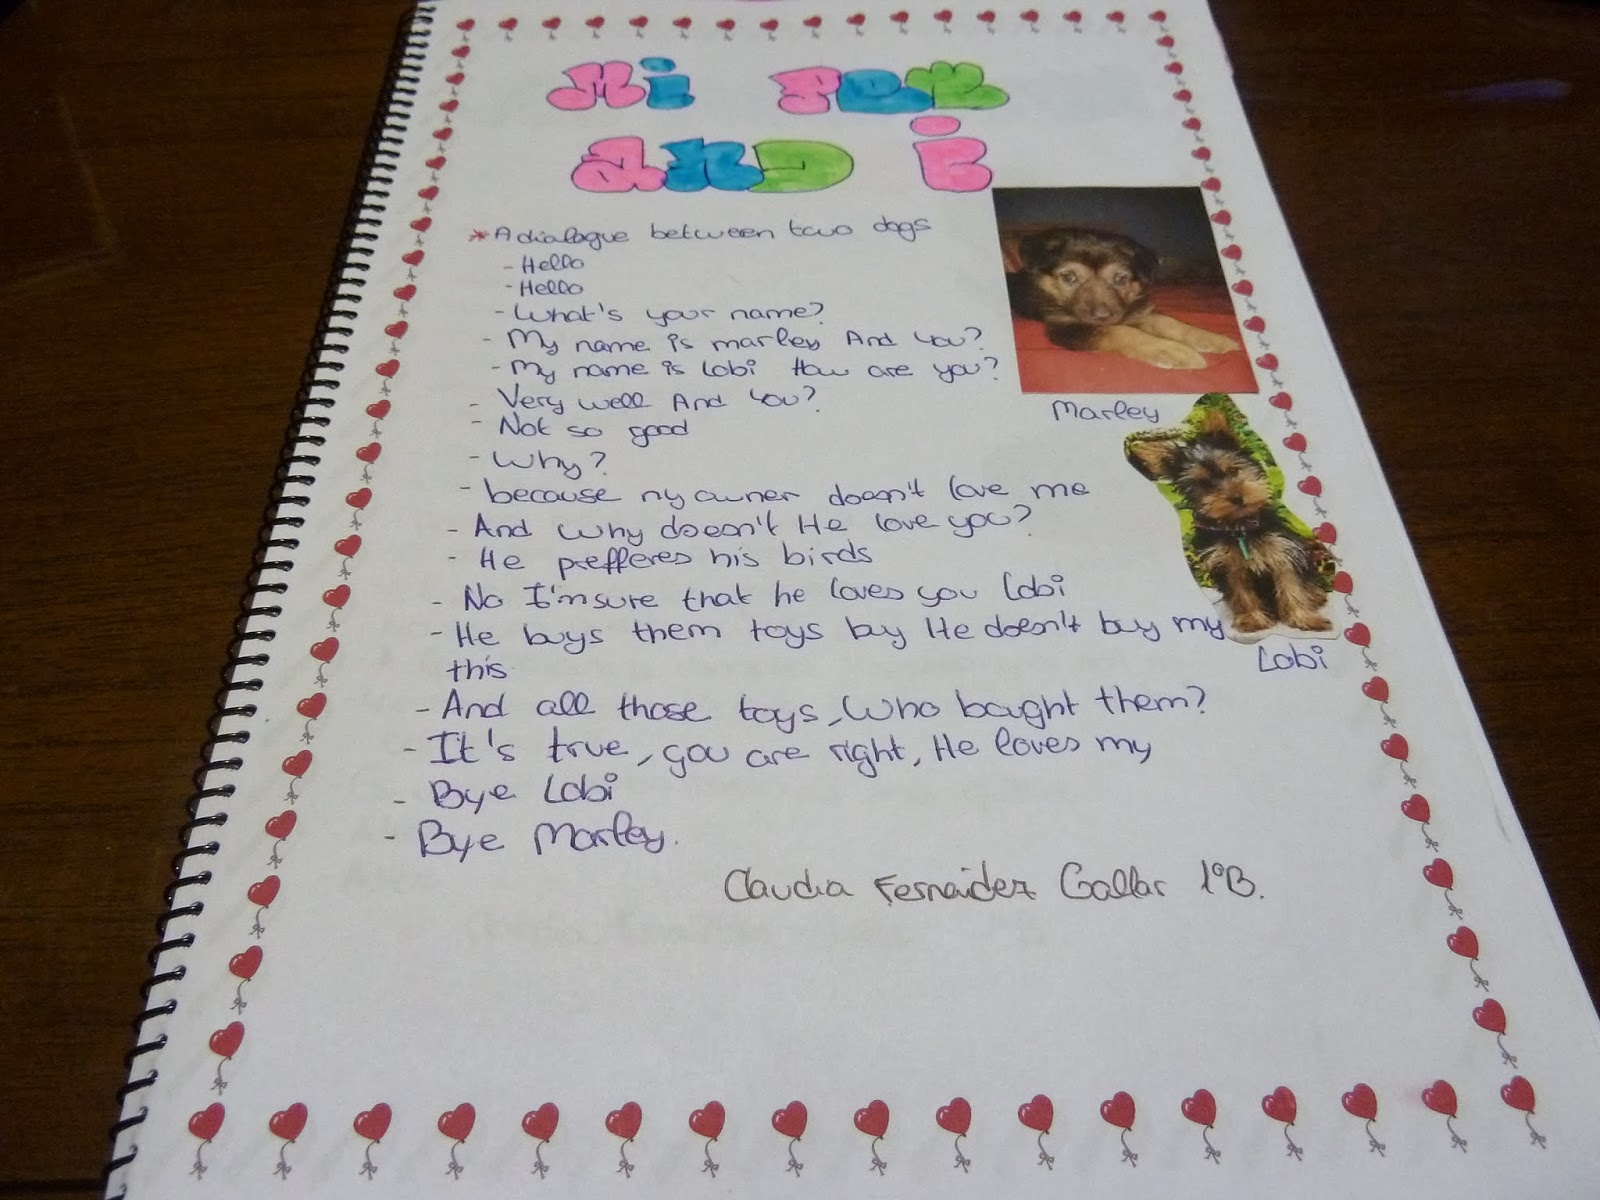 Mi Pet
and i
*A dialogue between two dogs
- Hello
- Hello
- What's your name?
- My name is marley And You?
- My name is Lobi How are you?
- Very well And You?
- Not so good
- Why?
- because ny owner doesn't love me
- And why doesn't He love you?
- He prefferes his birds
- No I'm sure that he loves you Lobi
- He buys them toys by He doesn't buy my
this
- And all those toys, Who bought them?
- It's true, you are right, He loves my
- Bye Lobi
- Bye Marley.
Marley
Lobi
Claudia Fernández Gallar 1ºB.